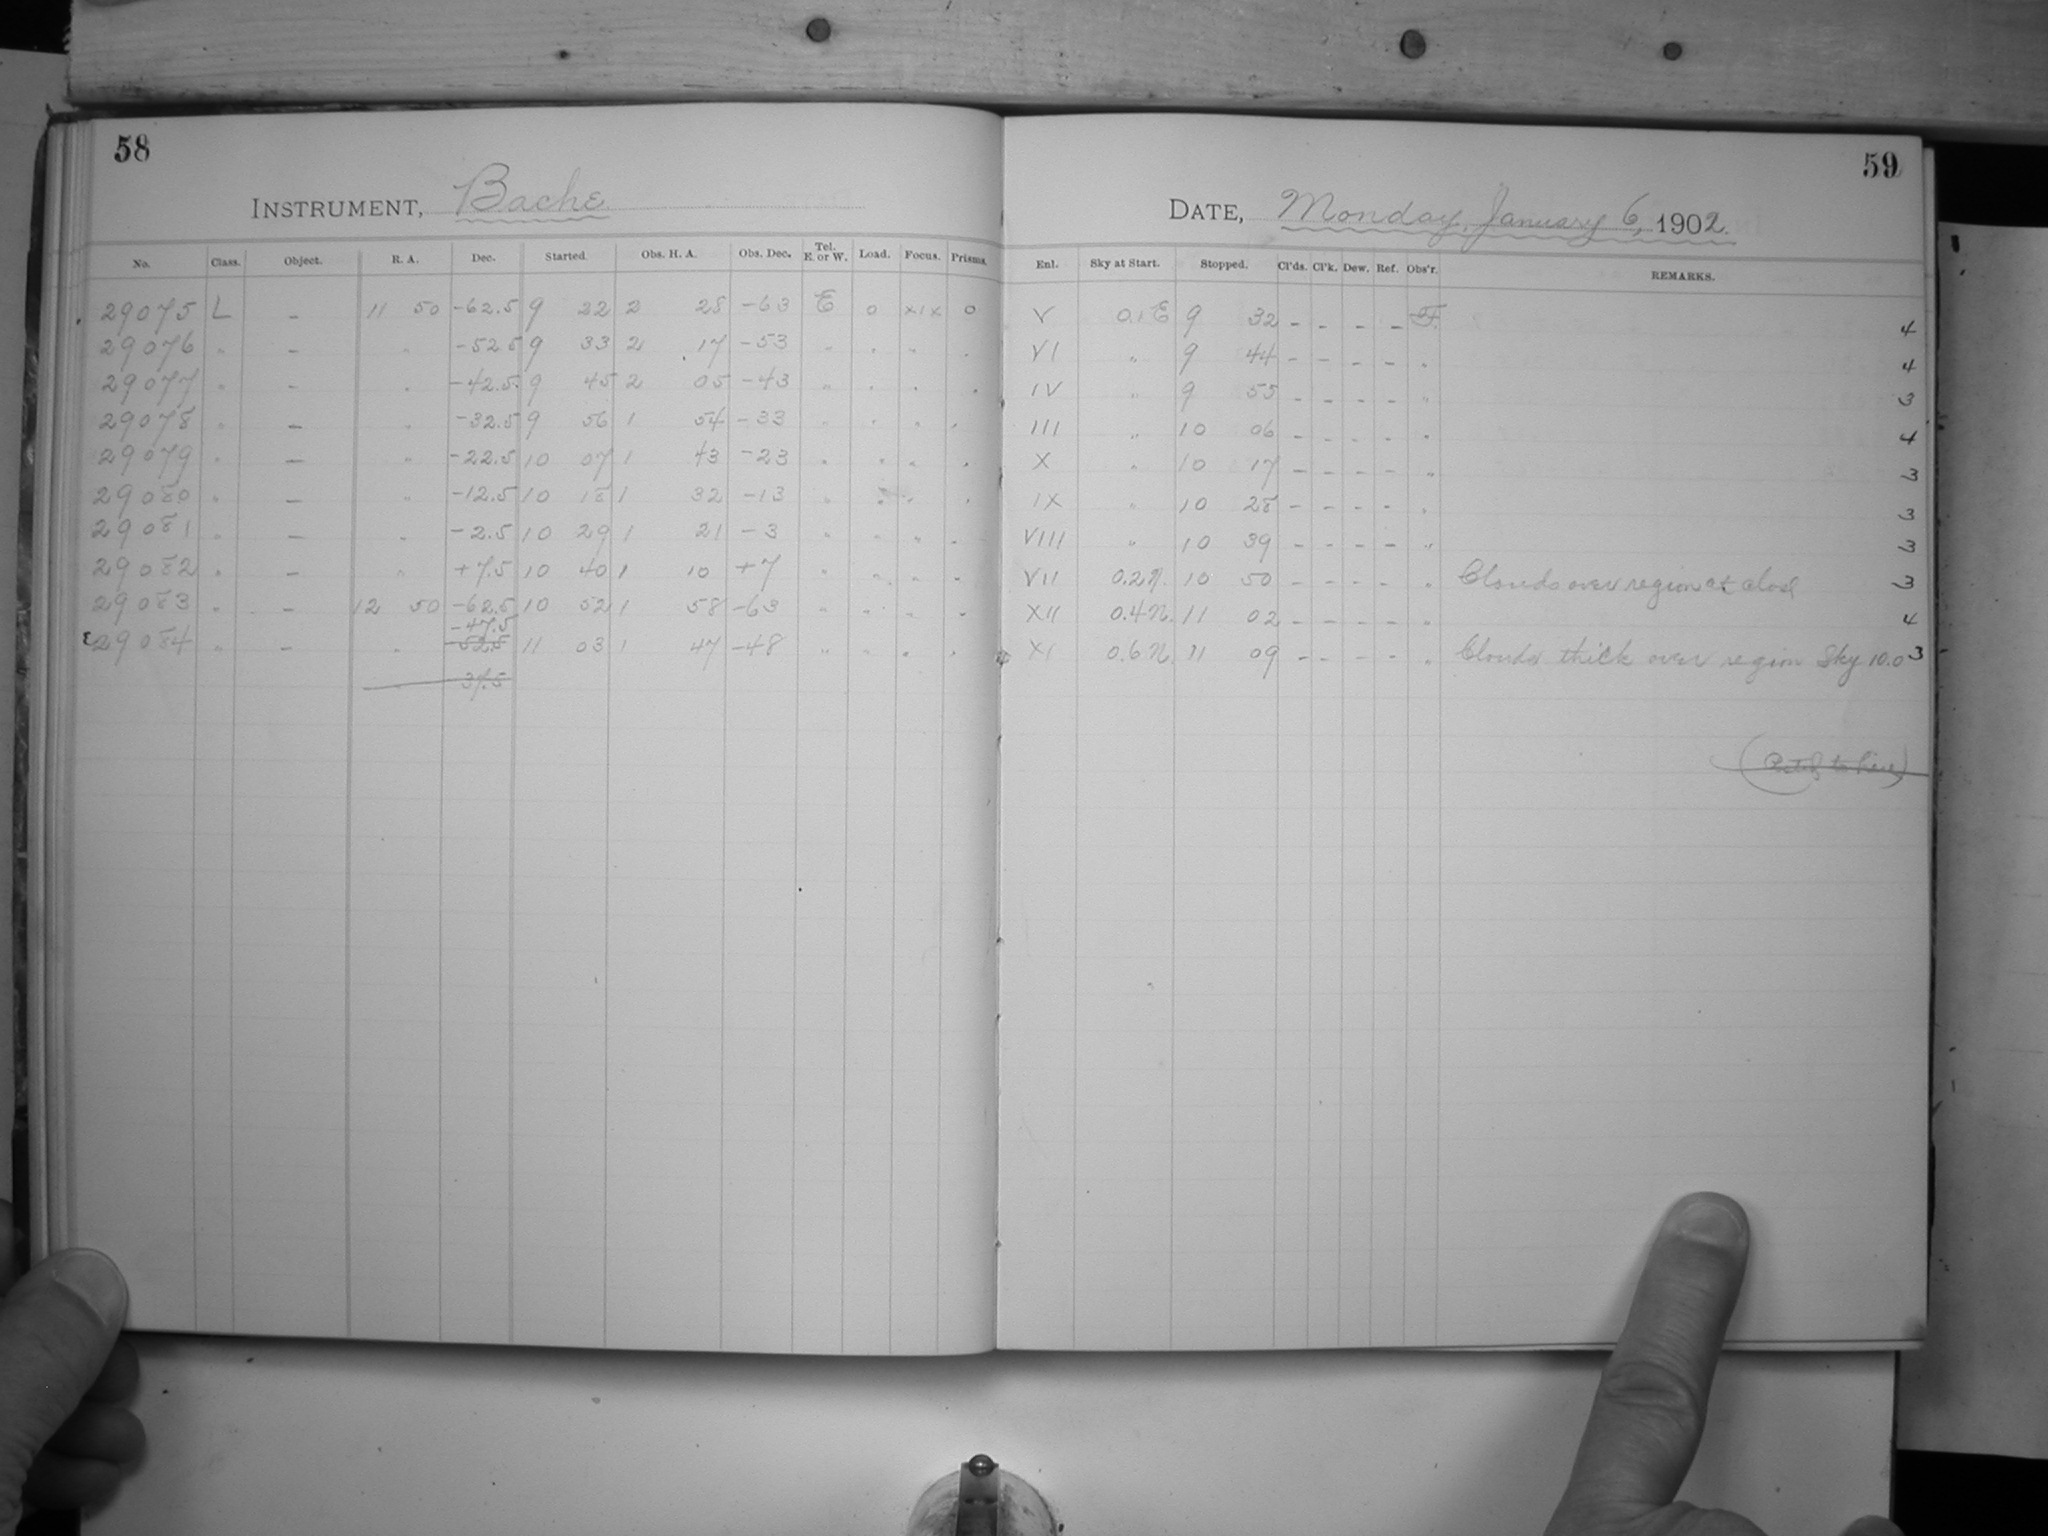 58
INSTRUMENT, Bache
No. Class. Object. R. A. Dec. Started. Obs. H. A. Obs. Dec. Tel. E. or W. Load. Focus. Prisms.
29075 L - 11 50 -62.5 9 22 2 28 -63 E 0 XIX 0
29076 " - " -52.5 9 33 2 17 -53 " " " "
29077 " - " -42.5 9 45 2 05 -43 " " " "
29078 " - " -32.5 9 56 1 54 -33 " " " "
29079 " - " -22.5 10 07 1 43 -23 " " " "
29080 " - " -12.5 10 18 1 32 -13 " " " "
29081 " - " -2.5 10 29 1 21 -3 " " " "
29082 " - " +7.5 10 40 1 10 +7 " " " "
29083 " - 12 50 -62.5 10 52 1 58 -63 " " " "
-47.5
29084 " - " -52.5 11 03 1 47 -48 " " " "
" 37.5
59
DATE, Monday, January 6, 1902.
Enl. Sky at Start. Stopped. Cl'ds. Cl'k. Dew. Ref. Obs'r. REMARKS.
V 0.1 E 9 32 - - - - F. 4
VI " 9 44 - - - - " 4
IV " 9 55 - - - - " 3
III " 10 06 - - - - " 4
X " 10 17 - - - - " 3
IX " 10 28 - - - - " 3
VIII " 10 39 - - - - " 3
VII 0.2 N. 10 50 - - - - " Clouds over region at close 3
XII 0.4 N. 11 02 - - - - " 4
XI 0.6 N. 11 09 - - - - " Clouds thick over region Sky 10.0 3
to here)